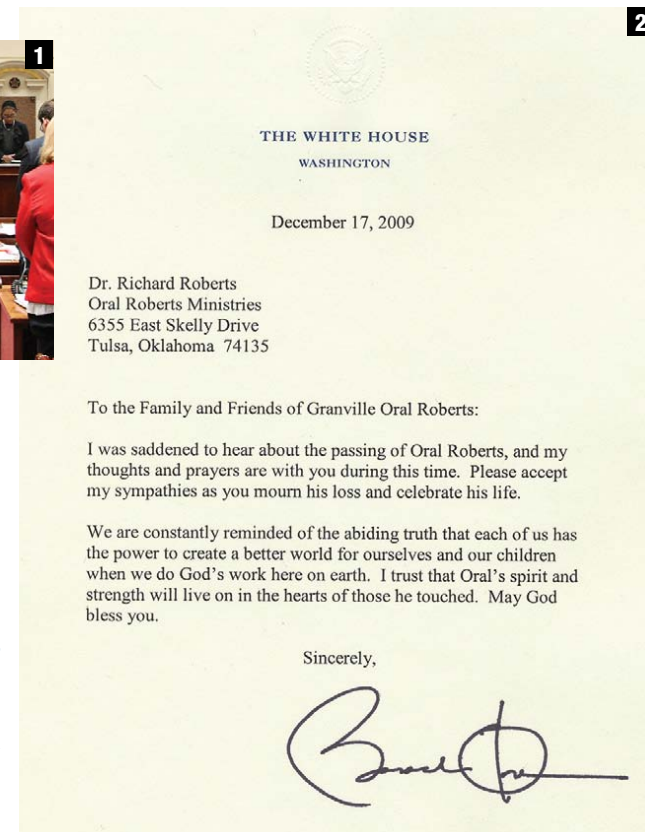 1
2
THE WHITE HOUSE
WASHINGTON
December 17, 2009
Dr. Richard Roberts
Oral Roberts Ministries
6355 East Skelly Drive
Tulsa, Oklahoma 74135
To the Family and Friends of Granville Oral Roberts:
I was saddened to hear about the passing of Oral Roberts, and my
thoughts and prayers are with you during this time. Please accept
my sympathies as you mourn his loss and celebrate his life.
We are constantly reminded of the abiding truth that each of us has
the power to create a better world for ourselves and our children
when we do God's work here on earth. I trust that Oral's spirit and
strength will live on in the hearts of those he touched. May God
bless you.
Sincerely,